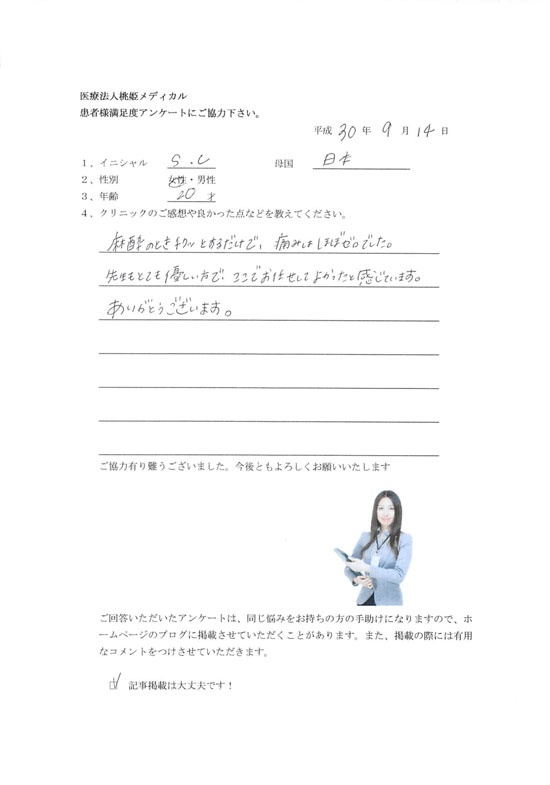 医療法人桃姫メディカル
患者様満足度アンケートにご協力下さい。
平成 30 年 9 月 14 日
1、イニシャル S.C 母国 日本
2、性別 女性・男性
3、年齢 20 才
4、クリニックのご感想や良かった点などを教えてください。
麻酔のときチクッとするだけで、痛みはほぼゼロでした。
先生もとても優しい方で、ここでお任せしてよかったと感じています。
ありがとうございます。
ご協力有り難うございました。今後ともよろしくお願いいたします
ご回答いただいたアンケートは、同じ悩みをお持ちの方の手助けになりますので、ホ
ームページのブログに掲載させていただくことがあります。また、掲載の際には有用
なコメントをつけさせていただきます。
☑ 記事掲載は大丈夫です！